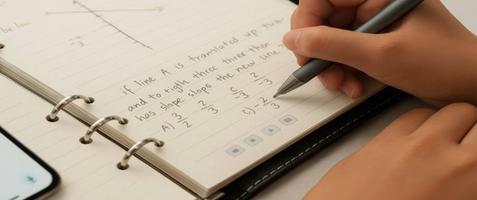 -3/3
if line A is translated up then
and to rigth three three then
has slope slops the new line
A) 3/2 2/3 C) 5/3 2/3
C) -2/3